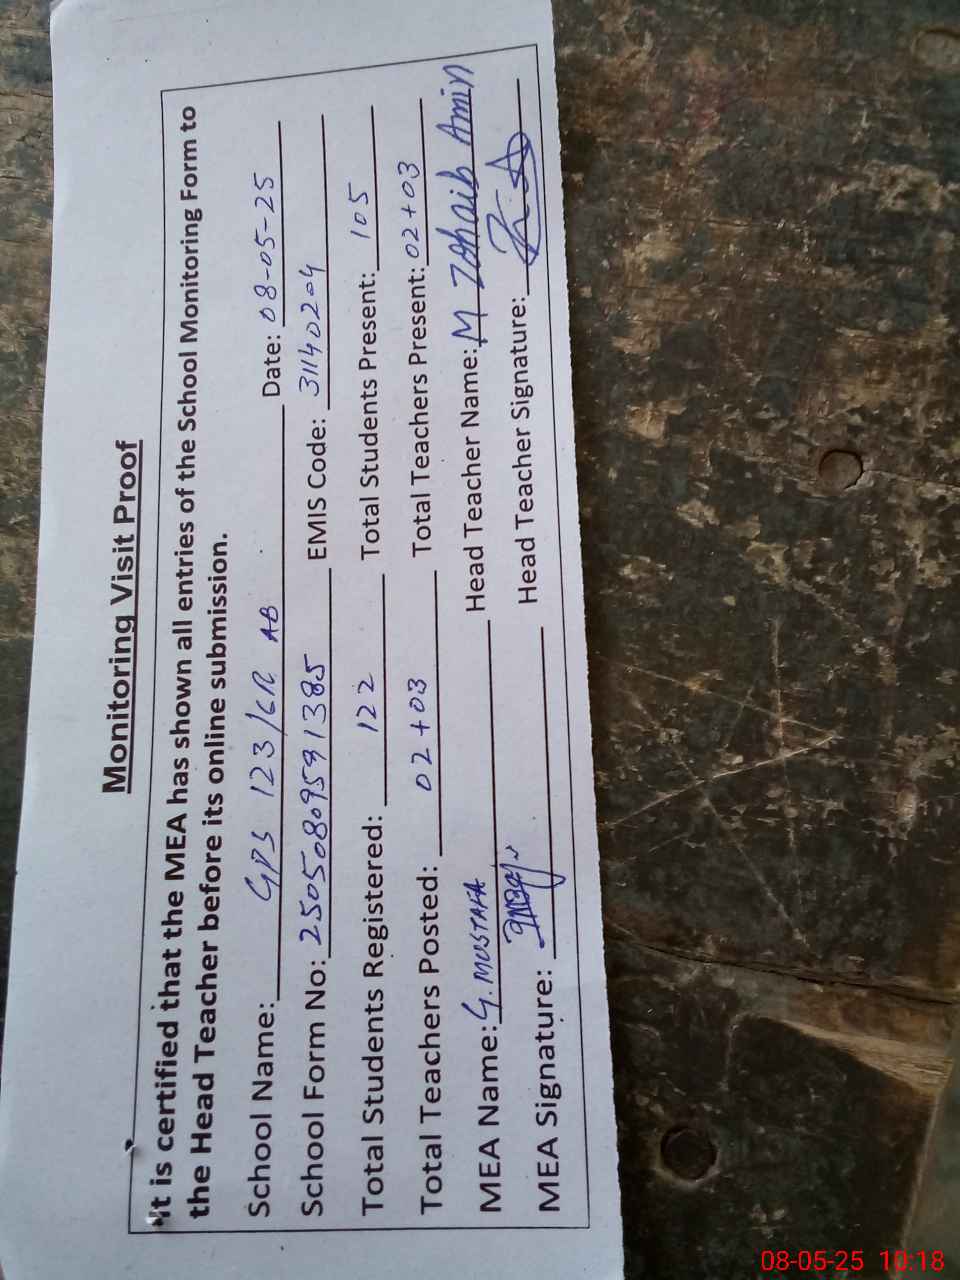 Monitoring Visit Proof
"It is certified that the MEA has shown all entries of the School Monitoring Form to
the Head Teacher before its online submission.
School Name: GPS 123/6R AB Date: 08-05-25
School Form No: 25050809591385 EMIS Code: 31140204
Total Students Registered: 122 Total Students Present: 105
Total Teachers Posted: 02+03 Total Teachers Present: 02+03
MEA Name: G. MUSTAFA Head Teacher Name: M Zohaib Amin
MEA Signature: Head Teacher Signature:
08-05-25 10:18